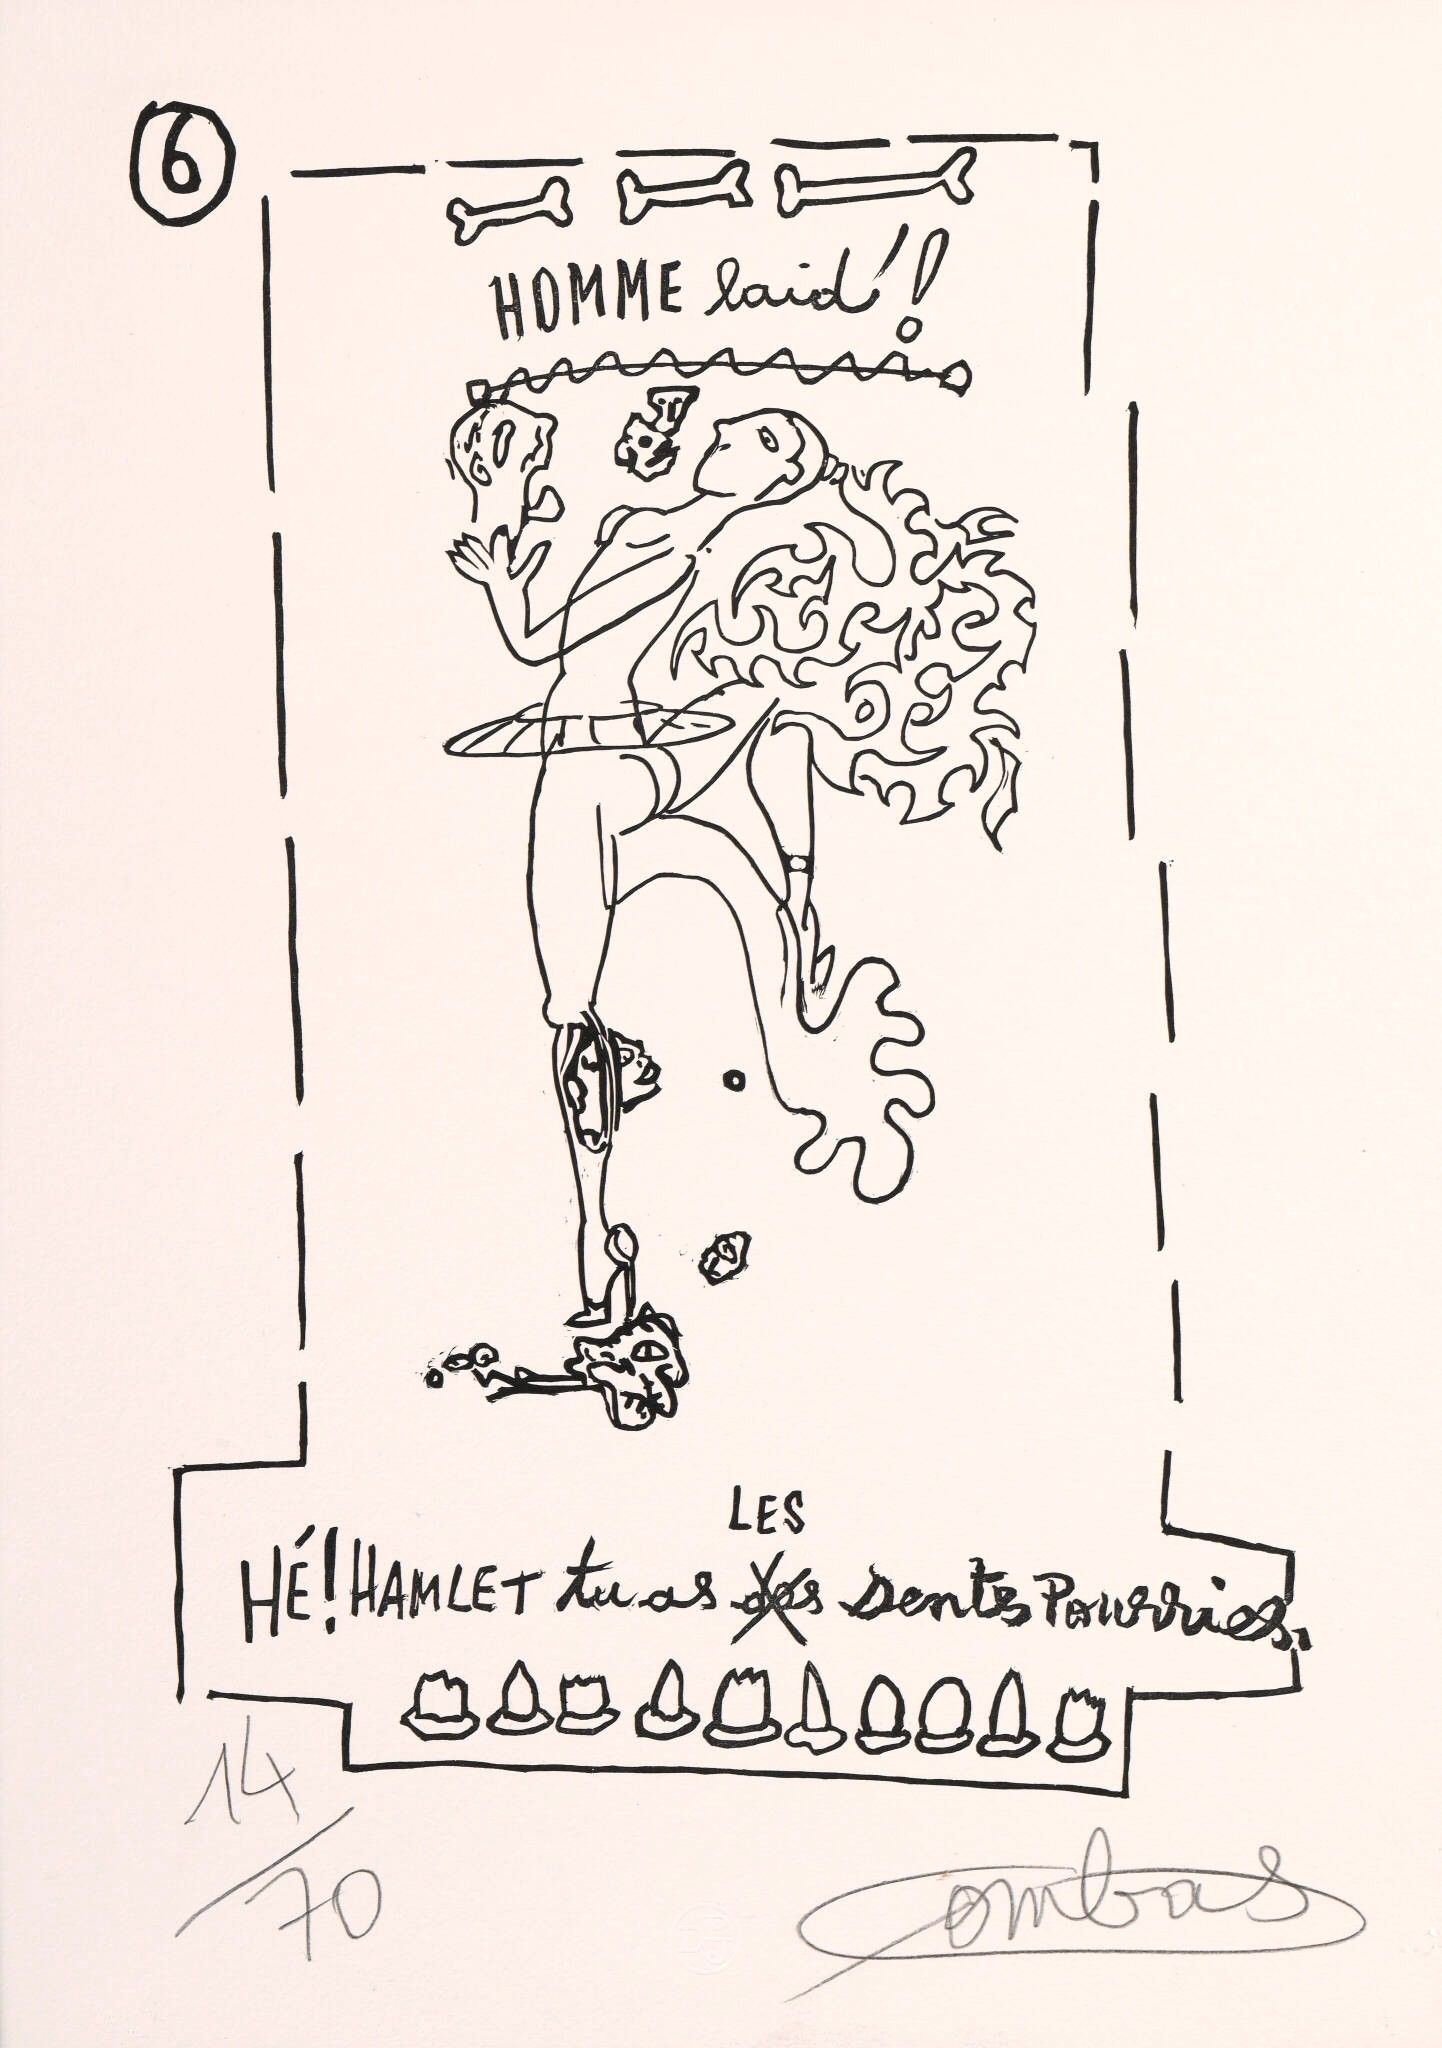 6
HOMME laid'!
LES
HÉ! HAMLET tu as des dents Pourries,
14/70
Combas